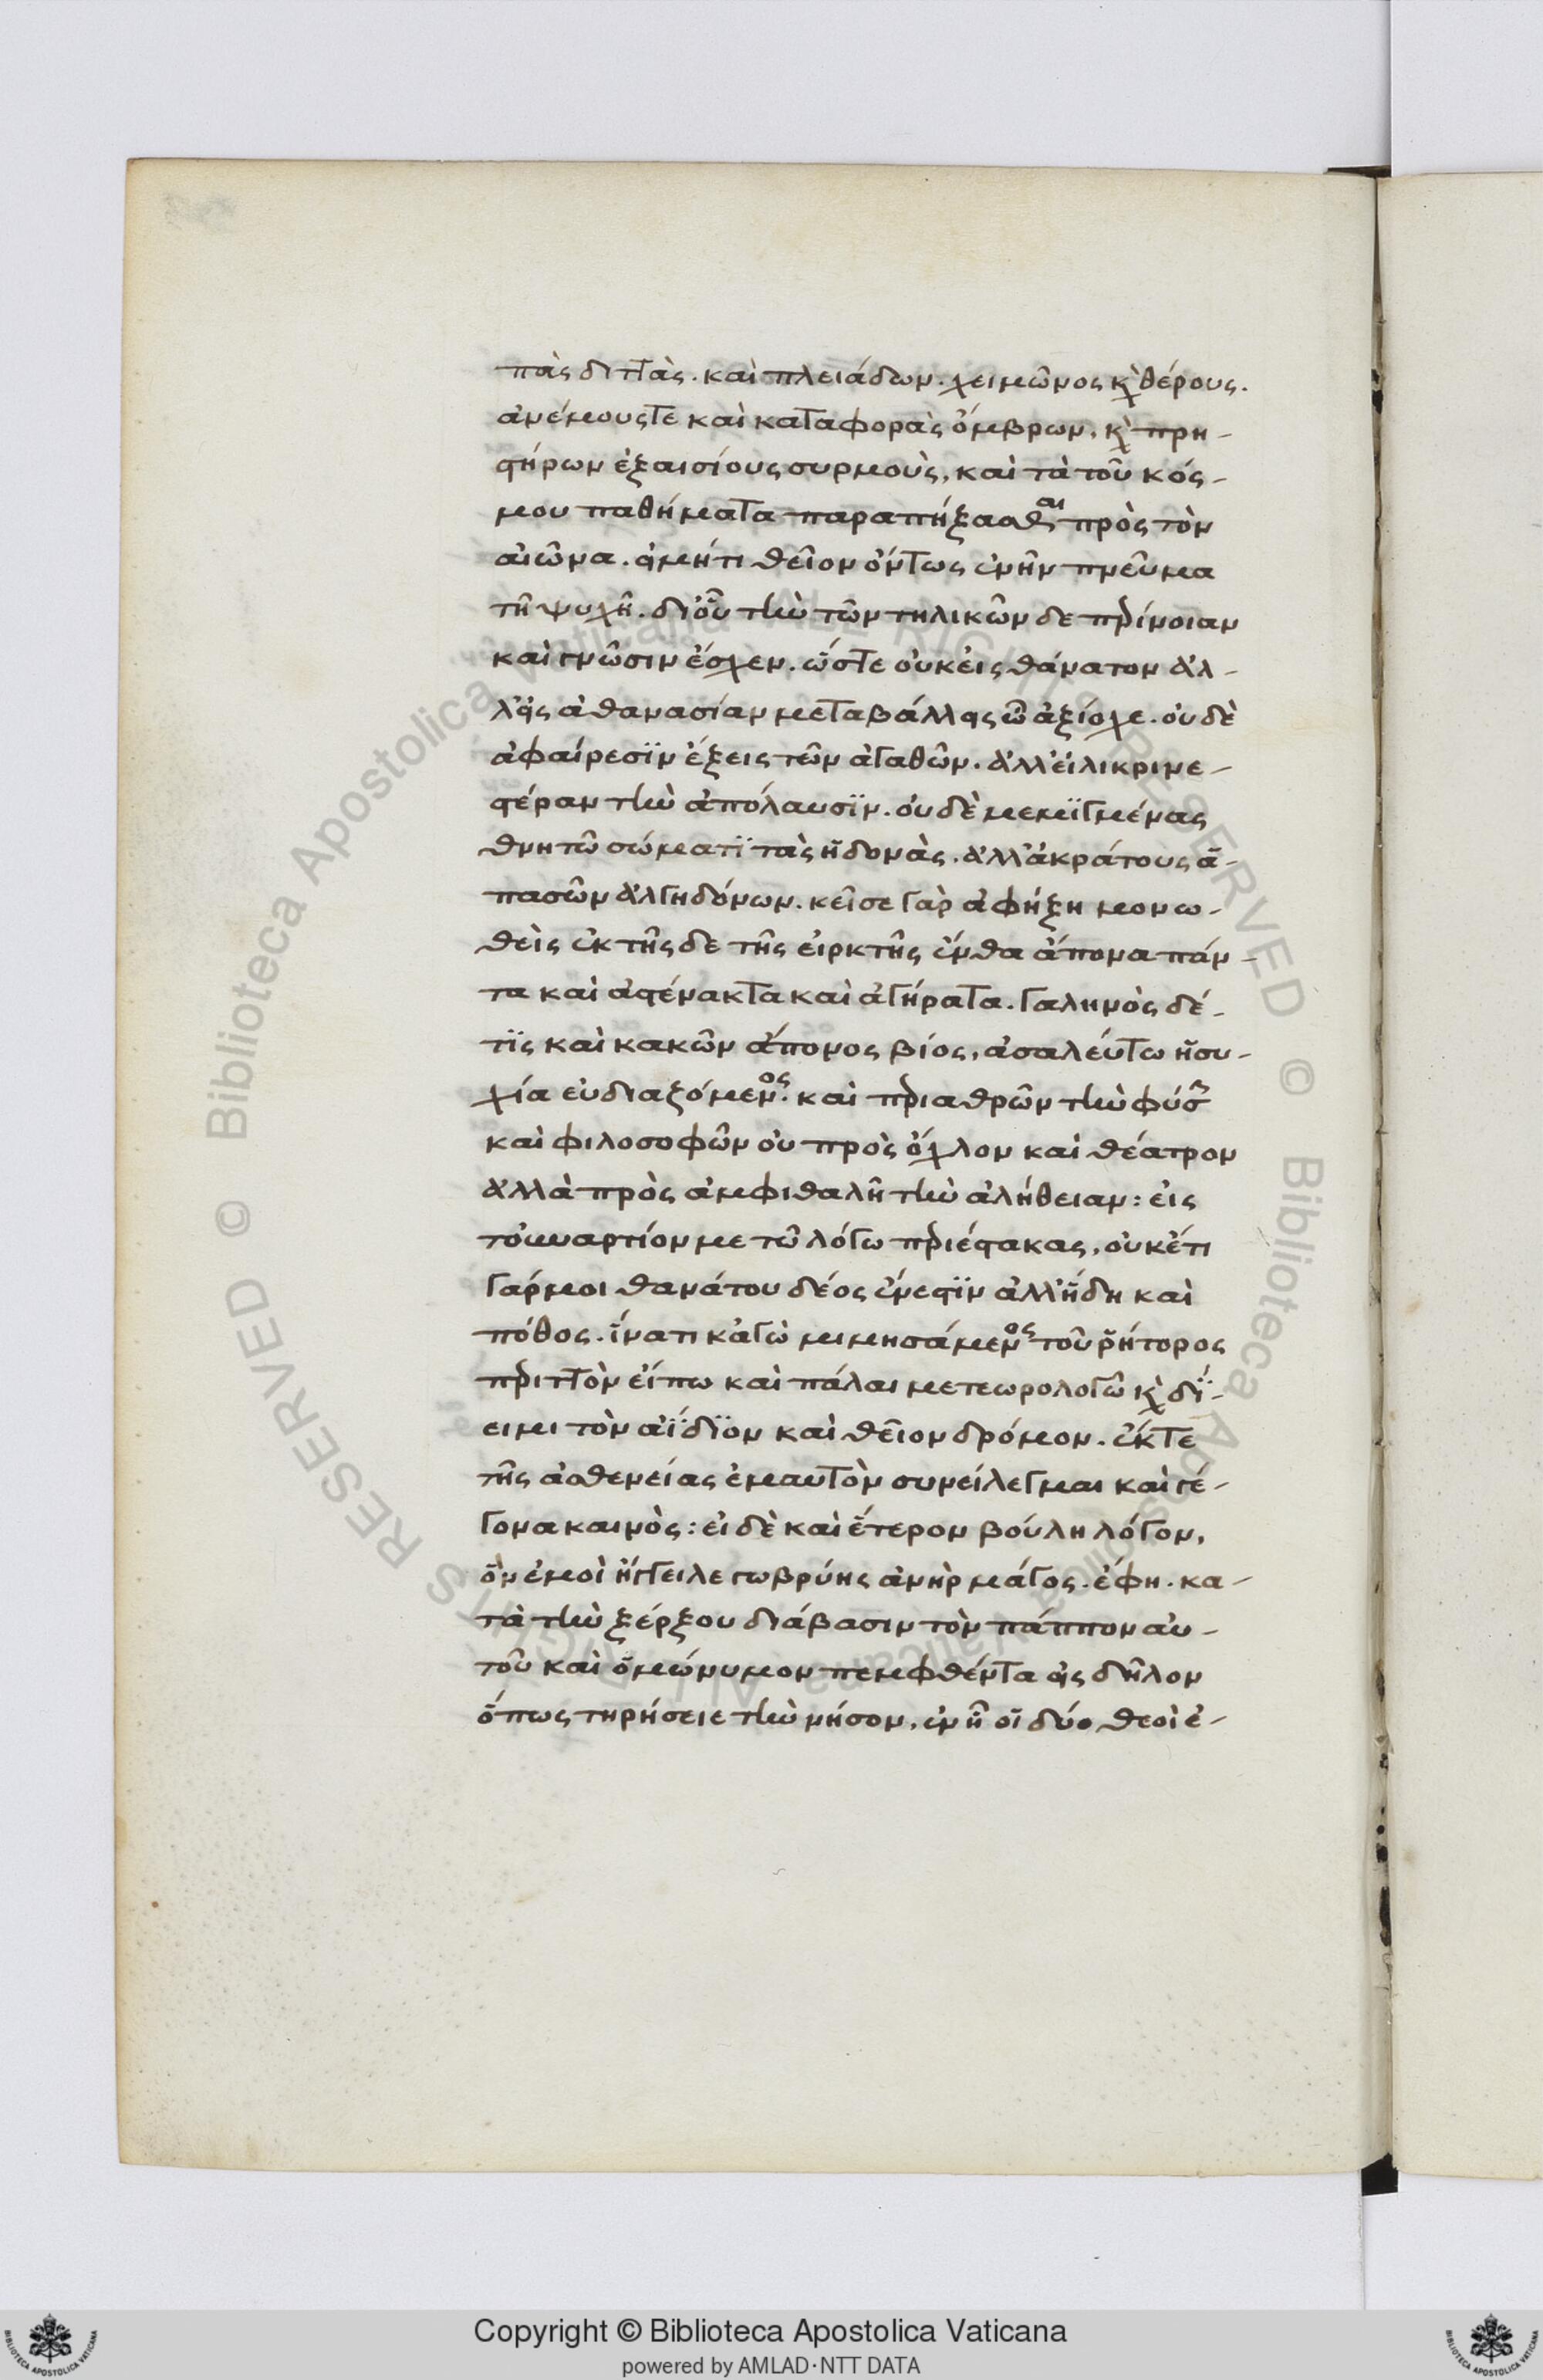 πὰς διττὰς. καὶ πλειάδων. χειμῶνος κ̀ θέρους.
ἀνέμους τε καὶ καταφορὰς ὄμβρων. κ̀ πρη-
στήρων ἐξαισίους συρμοὺς, καὶ τὰ τοῦ κός-
μου παθήματα παραπήξασθαι πρὸς τὸν
αἰῶνα. εἰ μή τι θεῖον ὄντως ἐνῆν πνεῦμα
τῆ ψυχῆ. δι' οὗ τὴν τῶν τηλικῶν δε περίνοιαν
καὶ γνῶσιν ἔσχεν. ὥστε οὐκ εἰς θάνατον ἀλ-
λ' εἰς ἀθανασίαν μεταβάλλεις ὦ ἀξίοχε. οὐδὲ
ἀφαίρεσϊν ἕξεις τῶν ἀγαθῶν. ἀλλ' εἰλικρινε-
στέραν τὴν ἀπόλαυσϊν. οὐδὲ μεμϊγμένας
θνητῶ σώματϊ τὰς ἡδονὰς. ἀλλ' ἀκράτους ἁ-
πασῶν ἀλγηδόνων. κεῖσε γὰρ ἀφήξη μονω-
θεὶς ἐκ τῆς δε τῆς εἱρκτῆς ἔνθα ἄπονα πάν-
τα καὶ ἀστένακτα καὶ ἀγήρατα. γαληνὸς δέ-
τϊς καὶ κακῶν ἄπονος βίος, ἀσαλεύτω ἡσυ-
χία εὐδιαζόμενος. καὶ περιαθρῶν τὴν φύσιν
καὶ φιλοσοφῶν οὐ πρὸς ὄχλον καὶ θέατρον
ἀλλὰ πρὸς ἀμφιθαλῆ τὴν ἀλήθειαν: εἰς
τοὐναντίον με τῶ λόγω περιέστακας, οὐκέτι
γάρ μοι θανάτου δέος ἔνεστϊν ἀλλ' ἤδη καὶ
πόθος. ἵνα τι κἀγὼ μιμησάμενος τοῦ ῥήτορος
περιττὸν εἴπω καὶ πάλαι μετεωρολογῶ κ̀ δί-
ειμι τὸν ἀΐδϊον καὶ θεῖον δρόμον. ἔκ τε
τῆς ἀσθενείας ἐμαυτὸν συνείλεγμαι καὶ γέ-
γονα καινὸς: εἰ δὲ καὶ ἕτερον βούλη λόγον,
ὃν ἐμοὶ ἤγγειλε γωβρύης ἀνὴρ μάγος. ἔφη. κα-
τὰ τὴν ξέρξου διάβασιν τὸν πάππον αὐ-
τοῦ καὶ ὁμώνυμον πεμφθέντα εἰς δῆλον
ὅπως τηρήσειε τὴν νῆσον, ἐν ἧ οἱ δύο θεοὶ ἐ-
Copyright © Biblioteca Apostolica Vaticana
powered by AMLAD·NTT DATA